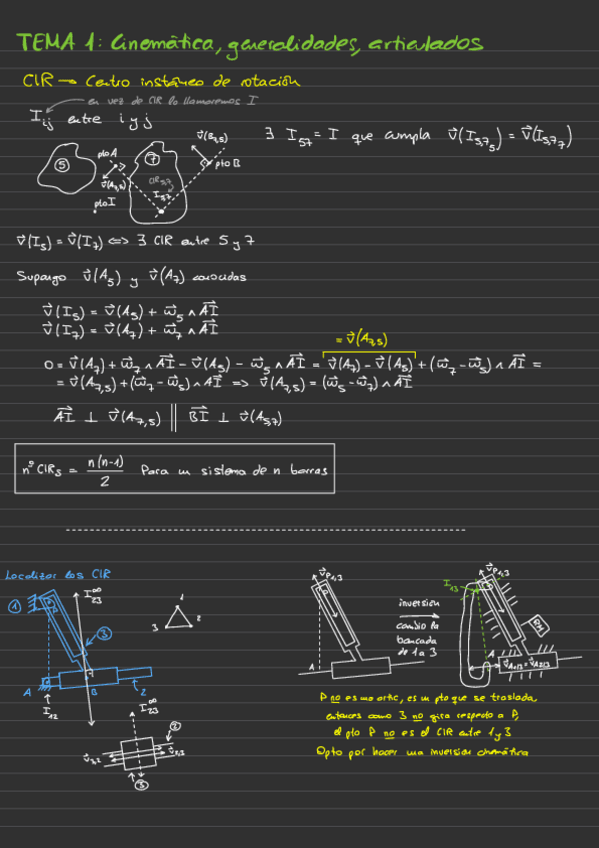 TEMA 1: Cinemática, generalidades, articulados
CIR → Centro instáneo de rotación
en vez de CIR lo llamaremos I
I_ij entre i y j
∃ I_57 = I que cumpla v⃗(I_5,7_5) = v⃗(I_5,7_7)
5
pto A
v⃗(A_7,5)
pto I
7
CIR_5,7
I_5,7
v⃗(B_7,5)
pto B
v⃗(I_5) = v⃗(I_7) ⇔ ∃ CIR entre 5 y 7
Supongo v⃗(A_5) y v⃗(A_7) conocidas
v⃗(I_5) = v⃗(A_5) + ω⃗_5 ∧ AI⃗
v⃗(I_7) = v⃗(A_7) + ω⃗_7 ∧ AI⃗
= v⃗(A_7,5)
0 = v⃗(A_7) + ω⃗_7 ∧ AI⃗ - v⃗(A_5) - ω⃗_5 ∧ AI⃗ = v⃗(A_7) - v⃗(A_5) + (ω⃗_7 - ω⃗_5) ∧ AI⃗ =
= v⃗(A_7,5) + (ω⃗_7 - ω⃗_5) ∧ AI⃗ ⇒ v⃗(A_7,5) = (ω⃗_5 - ω⃗_7) ∧ AI⃗
AI⃗ ⊥ v⃗(A_7,5) || BI⃗ ⊥ v⃗(A_5,7)
nº CIRs = n(n-1)/2 Para un sistema de n barras
Localizar los CIR
1
I_23^∞
3
A
B
2
I_12
1
3
2
I_23^∞
2
v⃗_3,2
v⃗_2,3
3
v⃗_P1,3
A
inversión
cambio la
bancada
de 1 a 3
I_13
v⃗_P1,3
A
v⃗_A1/3 = v⃗_A2/3
P no es una artic, es un pto que se traslada,
entonces como 3 no gira respecto a P,
el pto P no es el CIR entre 1 y 3
Opto por hacer una inversión cinemática